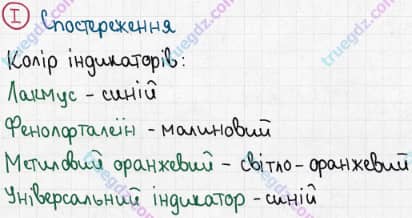 I Спостереження
Колір індикаторів:
Лакмус - синій
Фенолфталеїн - малиновий
Метиловий оранжевий - світло-оранжевий
Універсальний індикатор - синій
truegdz.com